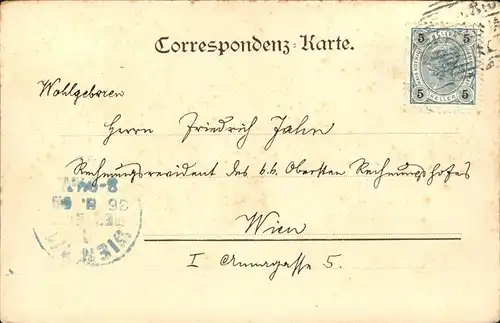 Correspondenz-Karte.
5 5
HELLER
5 5
Wohlgeboren
Herrn Friedrich Jahn
Rechnungsrevident des k.k. Obersten Rechnungshofes
Wien
I Annagasse 5.
WIEN